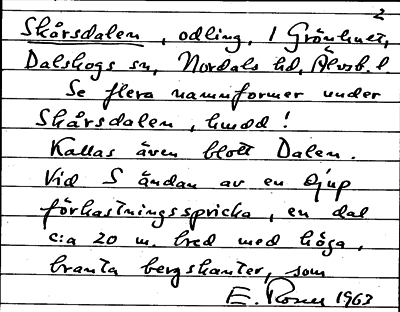 2
Skårsdalen, odling, / Grönhult,
Dalskogs sn, Nordals hd, Älvsb. l.
Se flera namnformer under
Skårsdalen, hmdd!
Kallas även blott Dalen.
Vid S ändan av en djup
förkastningsspricka, en dal
c:a 20 m. bred med höga,
branta bergskanter, som
E. Rosen 1963